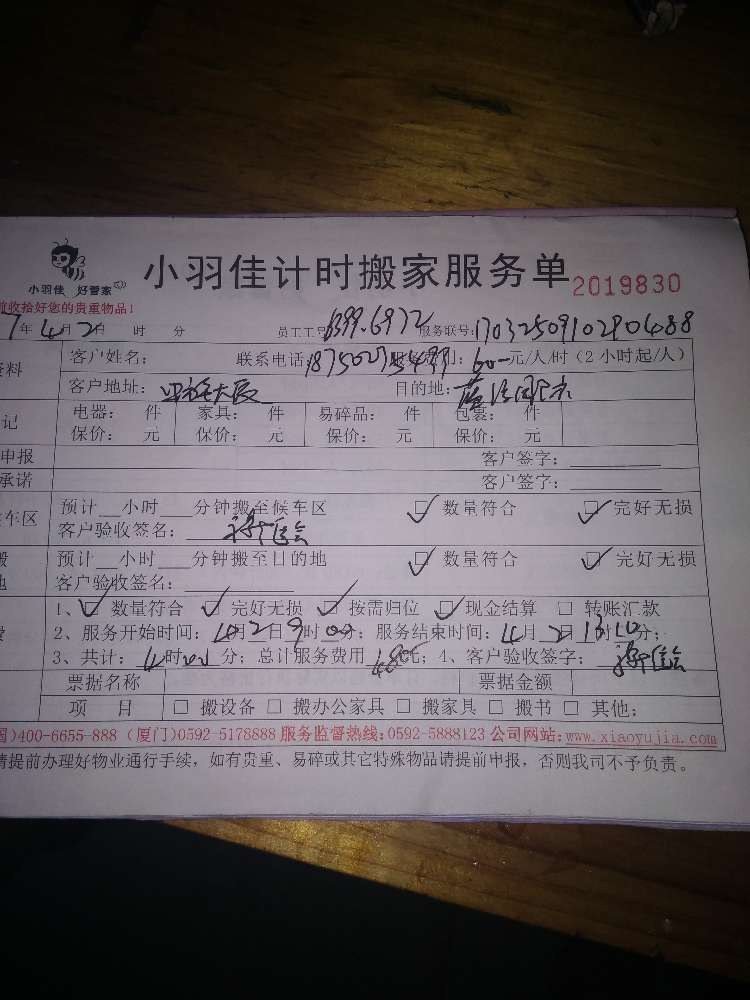 小羽佳 好管家
小羽佳计时搬家服务单 2019830
收拾好您的贵重物品!
7年4月2日 时 分 员工工号 1399.6972 服务联号:1703250910290488
资料 客户姓名: 联系电话: 费用:60一元/人/时(2小时起/人)
客户地址: 大厦 目的地:
记 电器: 件 家具: 件 易碎品: 件 包裹: 件
保价: 元 保价: 元 保价: 元 保价: 元
申报 客户签字:
承诺 客户签字:
车区 预计__小时___分钟搬至候车区 ☑ 数量符合 ☑ 完好无损
客户验收签名:
搬 预计__小时___分钟搬至目的地 ☑ 数量符合 ☑ 完好无损
地 客户验收签名:
费 1、☑ 数量符合 ☑ 完好无损 ☑ 按需归位 ☑ 现金结算 □ 转账汇款
2、服务开始时间:4月2日9时00分; 服务结束时间:4月2日13时10分;
3、共计:4时 分; 总计服务费用 480元; 4、客户验收签字:
票据名称 票据金额
项 目 □ 搬设备 □ 搬办公家具 □ 搬家具 □ 搬书 □ 其他:
国)400-6655-888 (厦门)0592-5178888 服务监督热线:0592-5888123 公司网站:www.xiaoyujia.com
请提前办理好物业通行手续,如有贵重、易碎或其它特殊物品请提前申报,否则我司不予负责。